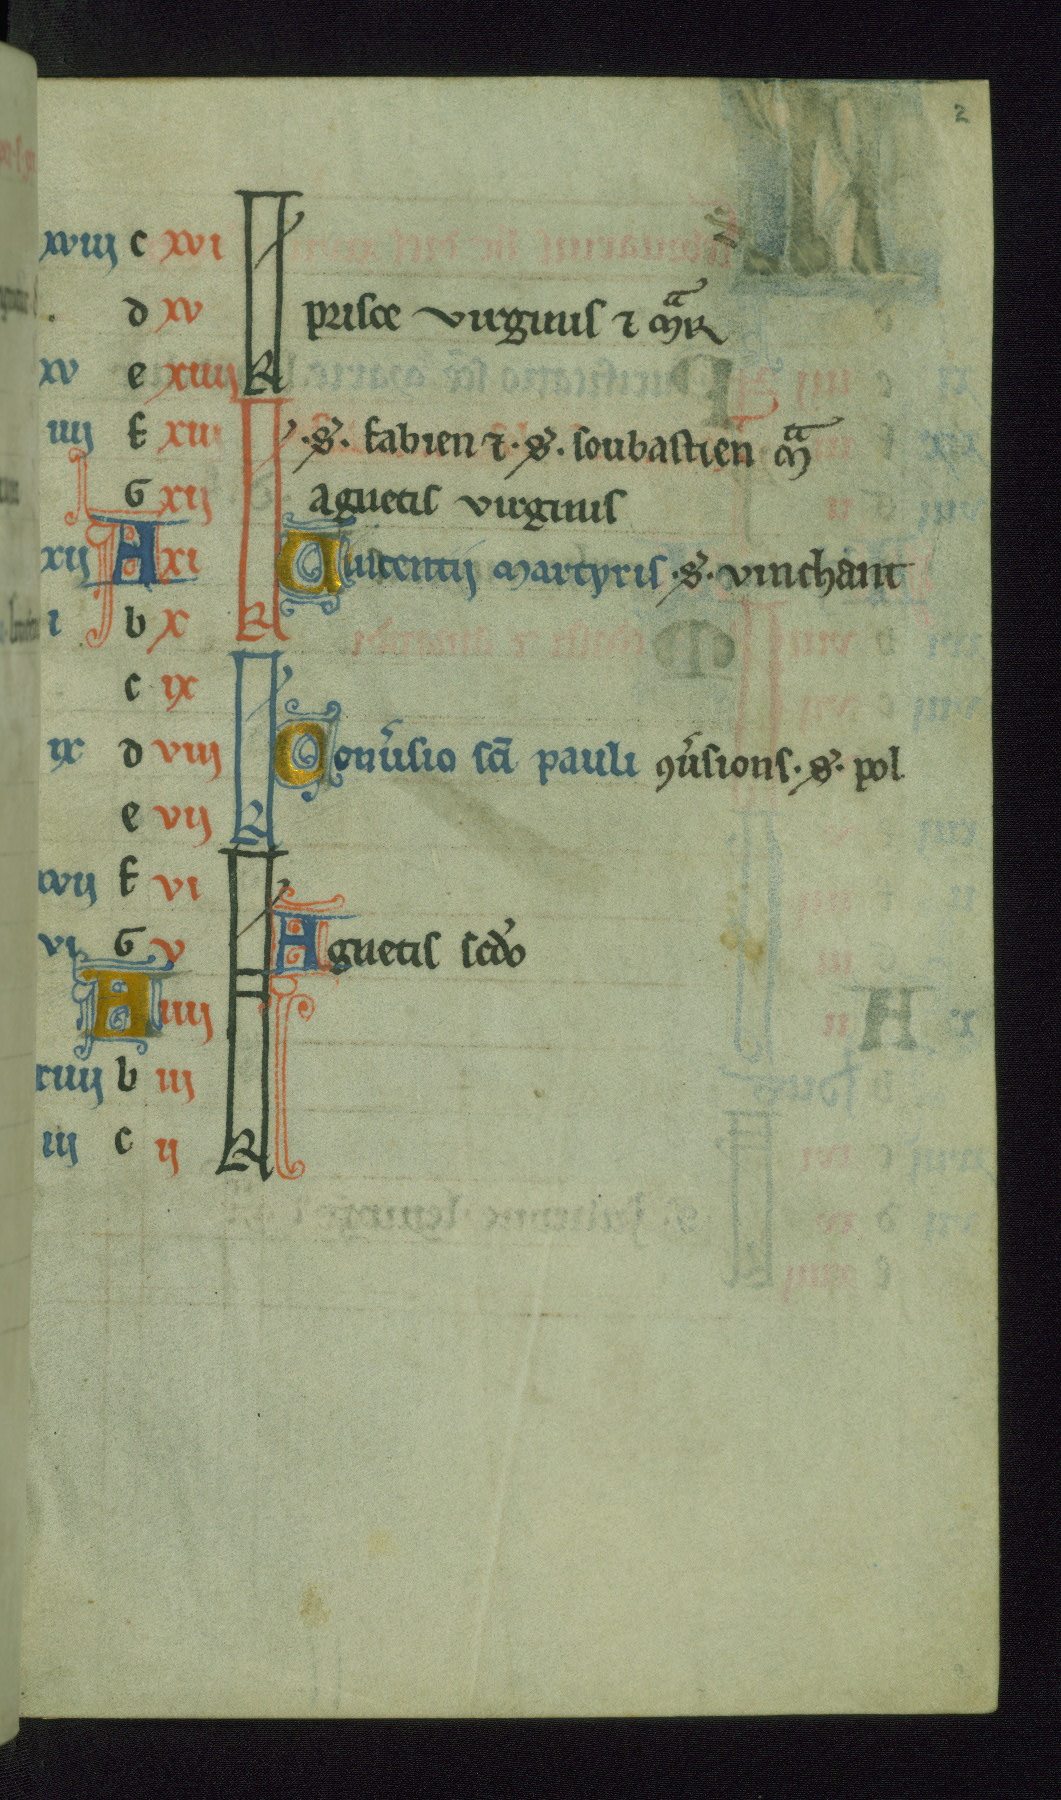 2
xviij c xvi
d xv prisce virginis ⁊ m̄r̄
xv e xiiij kl
iiij f xiii .s. fabien ⁊ .s. soubastien m̄
G xij agnetis virginis
xij A xi Vincentij martyris .s. vinchant
i b x kl
c ix
ix d viij Conv̓sio sc̄i pauli ꝯv̓sions .s. pol
e vij kl
xvij f vi
vi G v Agnetis scd̓o
A iiij
xiiij b iij
iij c ij kl